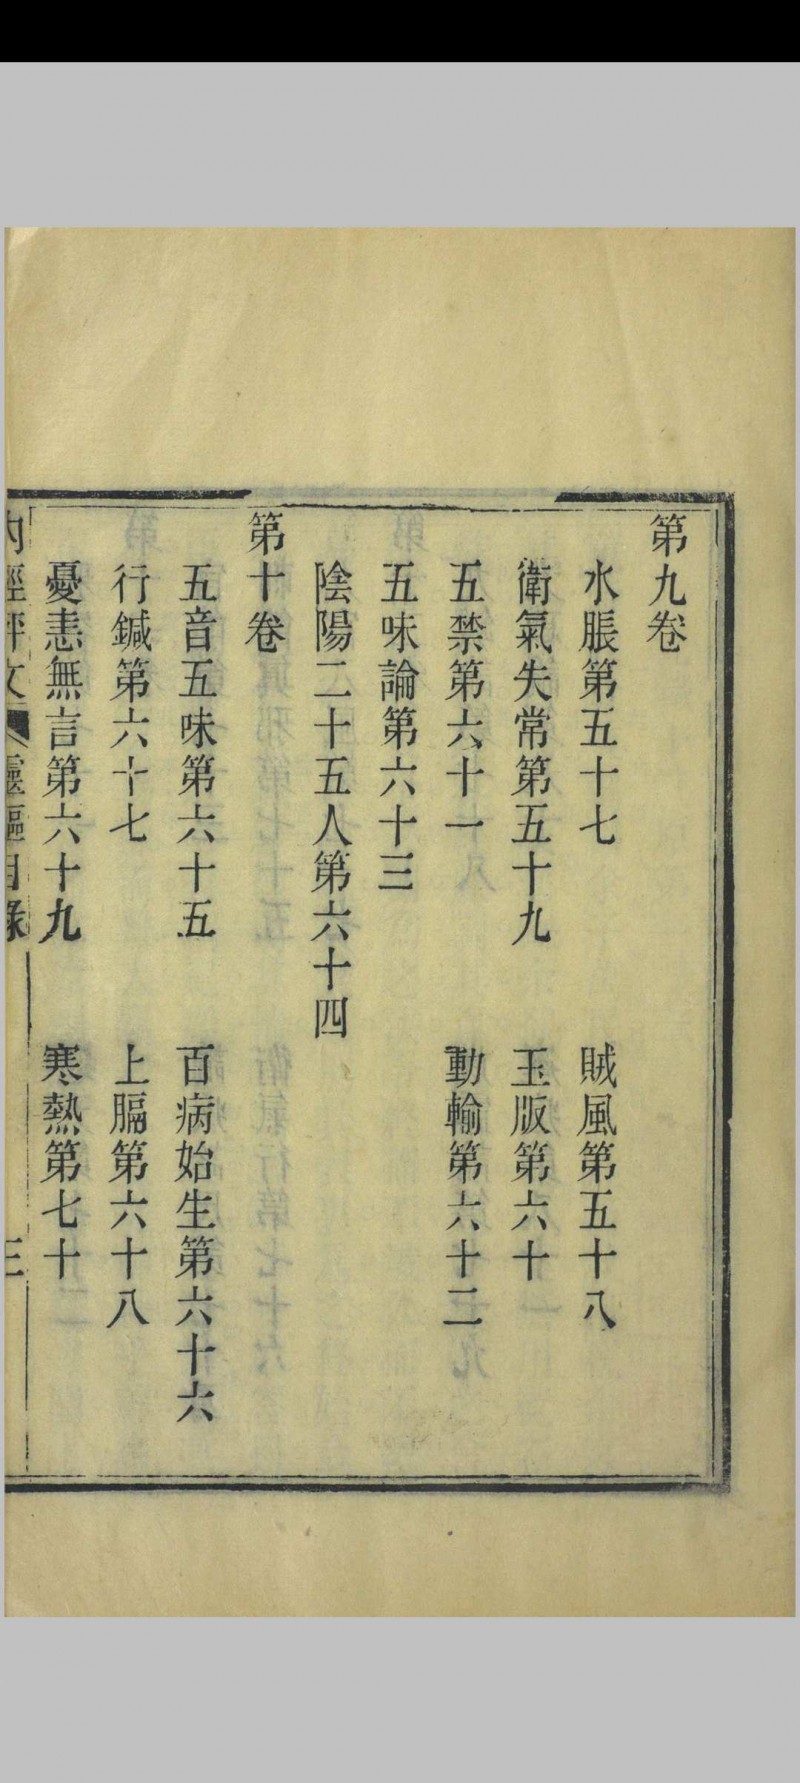 第九卷
水脹第五十七　賊風第五十八
衛氣失常第五十九　玉版第六十
五禁第六十一　動輸第六十二
五味論第六十三
陰陽二十五人第六十四
第十卷
五音五味第六十五　百病始生第六十六
行鍼第六十七　上膈第六十八
憂恚無言第六十九　寒熱第七十
內經評文　靈樞目錄　三